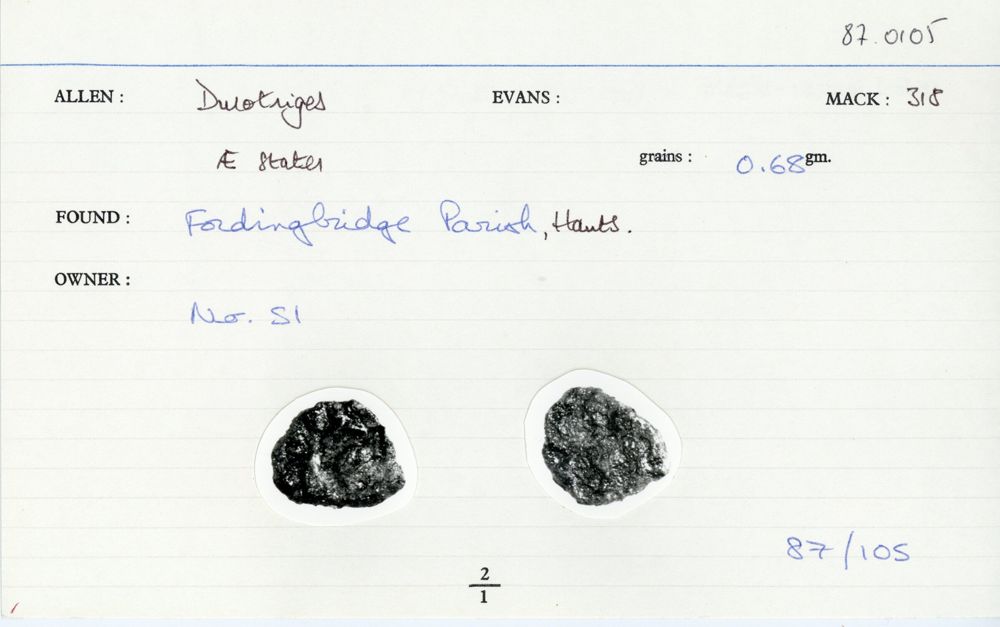 87.0105
ALLEN : Durotriges EVANS : MACK : 318
Æ Stater grains : 0.68 gm.
FOUND : Fordingbridge Parish, Hants.
OWNER :
No. 51
87/105
2
1